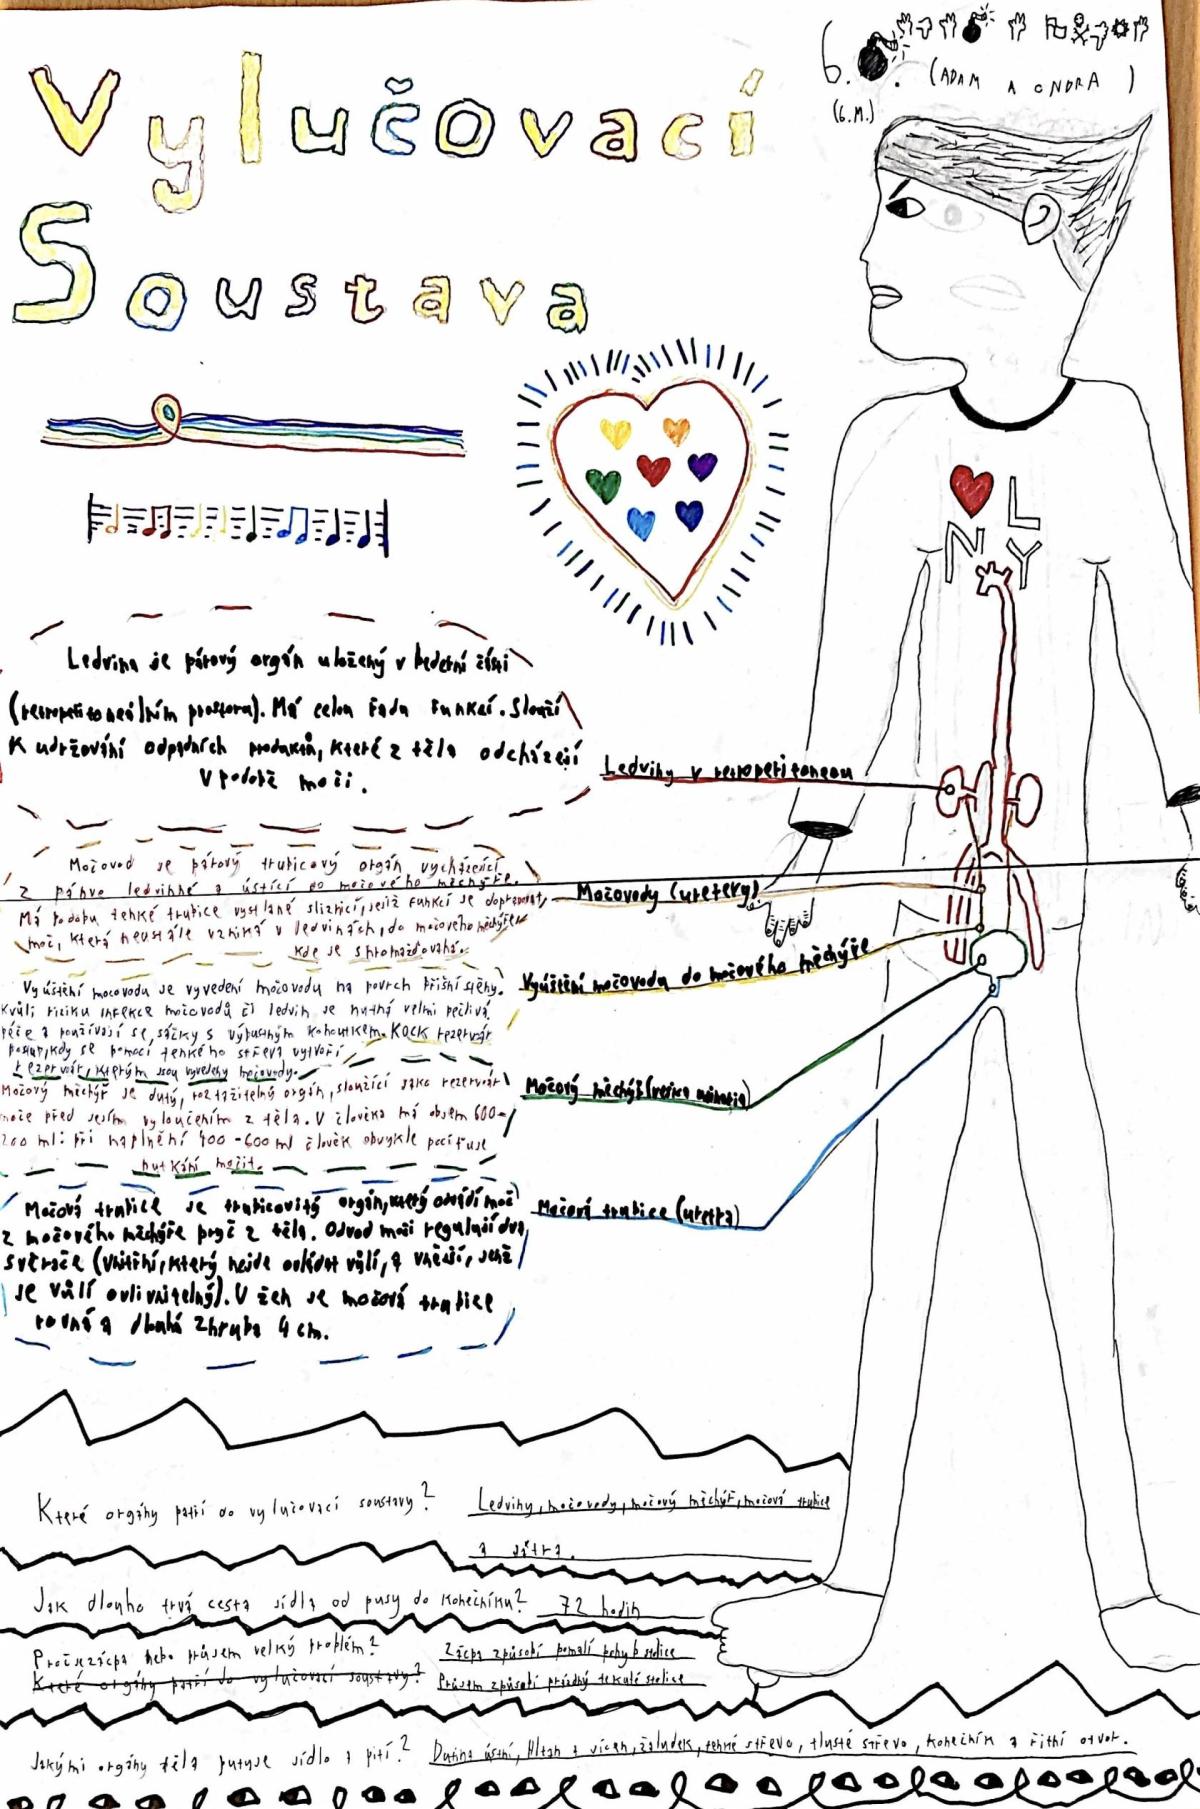 Vylučovací
Soustava
6.
(ADAM A ONDRA)
(6.M.)
L
N Y
Ledvina je párový orgán uložený v bederní části
(retroperitoneálním prostoru). Má celou řadu funkcí. Slouží
K udržování odpadních produktů, které z těla odcházejí
v podobě moči.
Ledviny v retroperitoneau
Močovod je párový trubicový orgán vycházející
z pánve ledvinné a ústící do močového měchýře.
Má podobu tenké trubice vystlané sliznicí, jejíž funkcí je dopravovat
moč, která neustále vzniká v ledvinách, do močového měchýře
kde se shromažďovaná.
Močovody (uretery)
Vyústění mocovodu je vyvedení močovodu na povrch břišní stěny.
Kvůli riziku infekce močovodů či ledvin je nutná velmi pečlivá
péče a používají se sáčky s výpustným kohoutkem. Kock rezervoár
postup, kdy se pomocí tenkého střeva vytvoří
rezervoár, kterým jsou vyvedeny močovody.
Vyústění močovodu do močového měchýře
Močový měchýř je dutý, roztažitelný orgán, sloužící jako rezervoár
moče před jejím vyloučením z těla. V člověka má objem 600-
700 ml: při naplnění 400-600 ml člověk obvykle pociťuje
nutkání močit.
Močový měchýř (vesica urinaria)
Močová trubice je trubicovitý orgán, který odvádí moč
z močového měchýře pryč z těla. Odvod moči regulují dva
svěrače (vnitřní, který nejde ovládat vůlí, a vnější, jenž
je vůlí ovlivnitelný). U žen je močová trubice
rovná a dlouhá zhruba 4 cm.
Močová trubice (uretra)
Které orgány patří do vylučovací soustavy? Ledviny, močovody, močový měchýř, močová trubice
a játra.
Jak dlouho trvá cesta jídla od pusy do konečníku? 72 hodin
Proč je zácpa nebo průjem velký problém? Zácpa způsobí pomalí pohyb stolice
Které orgány patří do vylučovací soustavy? Průjem způsobí prázdný tekuté stolice
Jakými orgány těla putuje jídlo a pití? Dutina ústní, Hltan a vícen, žaludek, tenké střevo, tlusté střevo, konečník a řitní otvor.